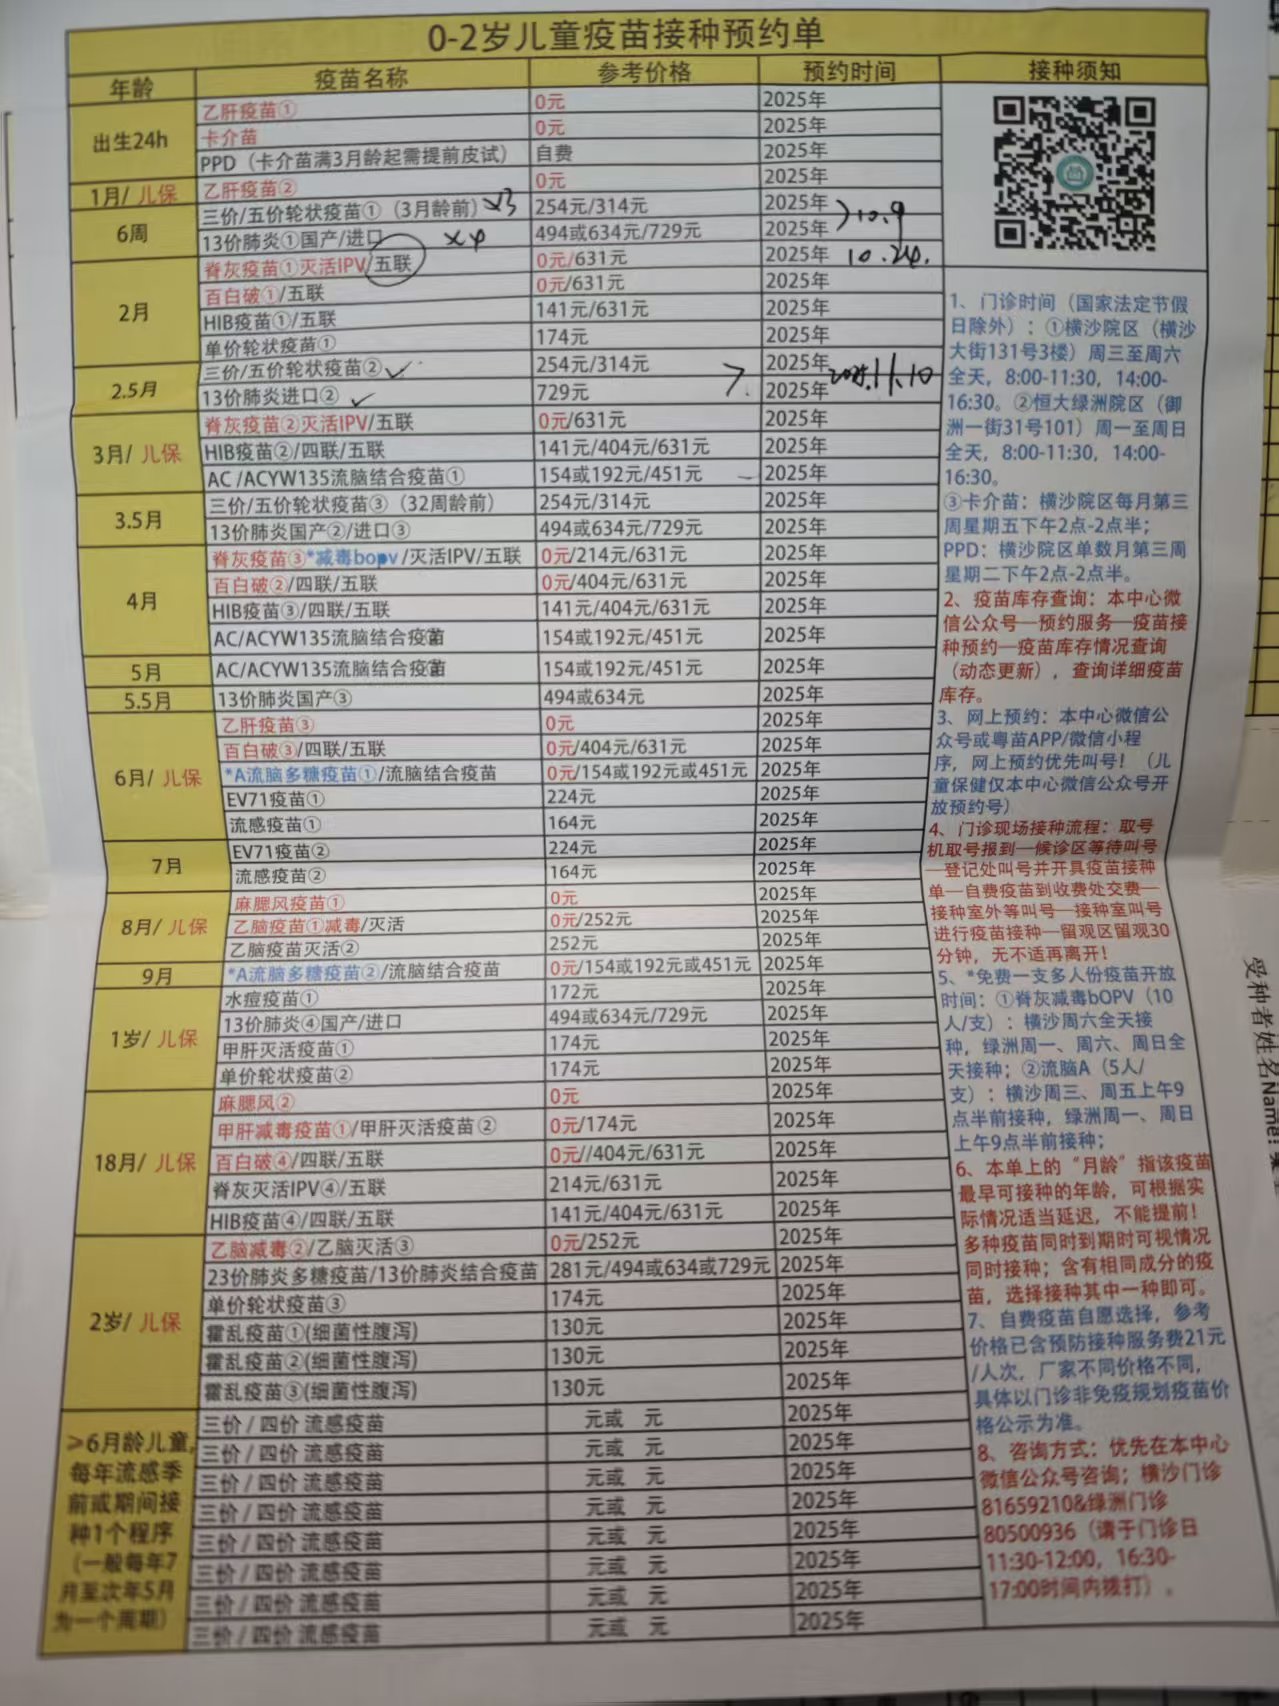 0-2岁儿童疫苗接种预约单
年龄 疫苗名称 参考价格 预约时间 接种须知
出生24h
乙肝疫苗① 0元 2025年
卡介苗 0元 2025年
PPD（卡介苗满3月龄起需提前皮试） 自费 2025年
1月/ 儿保 乙肝疫苗② 0元 2025年
6周
三价/五价轮状疫苗①（3月龄前） x3 254元/314元 2025年
13价肺炎①国产/进口 x4 494或634元/729元 2025年 >10.9
2月
脊灰疫苗①灭活IPV/五联 0元/631元 2025年 10.24.
百白破①/五联 0元/631元 2025年
HIB疫苗①/五联 141元/631元 2025年
单价轮状疫苗① 174元 2025年
2.5月
三价/五价轮状疫苗②✓ 254元/314元 2025年
13价肺炎进口② ✓ 729元 > 2025年 2025.11.10
3月/ 儿保
脊灰疫苗②灭活IPV/五联 0元/631元 2025年
HIB疫苗②/四联/五联 141元/404元/631元 2025年
AC /ACYW135流脑结合疫苗① 154或192元/451元 2025年
3.5月
三价/五价轮状疫苗③（32周龄前） 254元/314元 2025年
13价肺炎国产②/进口③ 494或634元/729元 2025年
4月
脊灰疫苗③*减毒bopv/灭活IPV/五联 0元/214元/631元 2025年
百白破②/四联/五联 0元/404元/631元 2025年
HIB疫苗③/四联/五联 141元/404元/631元 2025年
AC/ACYW135流脑结合疫苗 154或192元/451元 2025年
5月 AC/ACYW135流脑结合疫苗 154或192元/451元 2025年
5.5月 13价肺炎国产③ 494或634元 2025年
6月/ 儿保
乙肝疫苗③ 0元 2025年
百白破③/四联/五联 0元/404元/631元 2025年
*A流脑多糖疫苗①/流脑结合疫苗 0元/154或192元或451元 2025年
EV71疫苗① 224元 2025年
流感疫苗① 164元 2025年
7月
EV71疫苗② 224元 2025年
流感疫苗② 164元 2025年
8月/ 儿保
麻腮风疫苗① 0元 2025年
乙脑疫苗①减毒/灭活 0元/252元 2025年
乙脑疫苗灭活② 252元 2025年
9月 *A流脑多糖疫苗②/流脑结合疫苗 0元/154或192元或451元 2025年
1岁/ 儿保
水痘疫苗① 172元 2025年
13价肺炎④国产/进口 494或634元/729元 2025年
甲肝灭活疫苗① 174元 2025年
单价轮状疫苗② 174元 2025年
18月/ 儿保
麻腮风② 0元 2025年
甲肝减毒疫苗①/甲肝灭活疫苗② 0元/174元 2025年
百白破④/四联/五联 0元//404元/631元 2025年
脊灰灭活IPV④/五联 214元/631元 2025年
HIB疫苗④/四联/五联 141元/404元/631元 2025年
2岁/ 儿保
乙脑减毒②/乙脑灭活③ 0元/252元 2025年
23价肺炎多糖疫苗/13价肺炎结合疫苗 281元/494或634或729元 2025年
单价轮状疫苗③ 174元 2025年
霍乱疫苗①(细菌性腹泻) 130元 2025年
霍乱疫苗②(细菌性腹泻) 130元 2025年
霍乱疫苗③(细菌性腹泻) 130元 2025年
≥6月龄儿童,
每年流感季
前或期间接
种1个程序
（一般每年7
月至次年5月
为一个周期）
三价 / 四价 流感疫苗 元或 元 2025年
三价 / 四价 流感疫苗 元或 元 2025年
三价 / 四价 流感疫苗 元或 元 2025年
三价 / 四价 流感疫苗 元或 元 2025年
三价 / 四价 流感疫苗 元或 元 2025年
三价 / 四价 流感疫苗 元或 元 2025年
三价 / 四价 流感疫苗 元或 元 2025年
三价 / 四价 流感疫苗 元或 元 2025年
1、门诊时间（国家法定节假
日除外）：①横沙院区（横沙
大街131号3楼）周三至周六
全天，8:00-11:30，14:00-
16:30。②恒大绿洲院区（御
洲一街31号101）周一至周日
全天，8:00-11:30，14:00-
16:30。
③卡介苗：横沙院区每月第三
周星期五下午2点-2点半；
PPD：横沙院区单数月第三周
星期二下午2点-2点半。
2、疫苗库存查询：本中心微
信公众号—预约服务—疫苗接
种预约—疫苗库存情况查询
（动态更新），查询详细疫苗
库存。
3、网上预约：本中心微信公
众号或粤苗APP/微信小程
序，网上预约优先叫号！（儿
童保健仅本中心微信公众号开
放预约号）
4、门诊现场接种流程：取号
机取号报到—候诊区等待叫号
—登记处叫号并开具疫苗接种
单—自费疫苗到收费处交费—
接种室外等叫号—接种室叫号
进行疫苗接种—留观区留观30
分钟，无不适再离开！
5、*免费一支多人份疫苗开放
时间：①脊灰减毒bOPV（10
人/支）：横沙周六全天接
种，绿洲周一、周六、周日全
天接种；②流脑A（5人/
支）：横沙周三、周五上午9
点半前接种，绿洲周一、周日
上午9点半前接种；
6、本单上的“月龄”指该疫苗
最早可接种的年龄，可根据实
际情况适当延迟，不能提前！
多种疫苗同时到期时可视情况
同时接种；含有相同成分的疫
苗，选择接种其中一种即可。
7、自费疫苗自愿选择，参考
价格已含预防接种服务费21元
/人次，厂家不同价格不同，
具体以门诊非免疫规划疫苗价
格公示为准。
8、咨询方式：优先在本中心
微信公众号咨询；横沙门诊
81659210&绿洲门诊
80500936（请于门诊日
11:30-12:00，16:30-
17:00时间内拨打）。
受种者姓名Name: